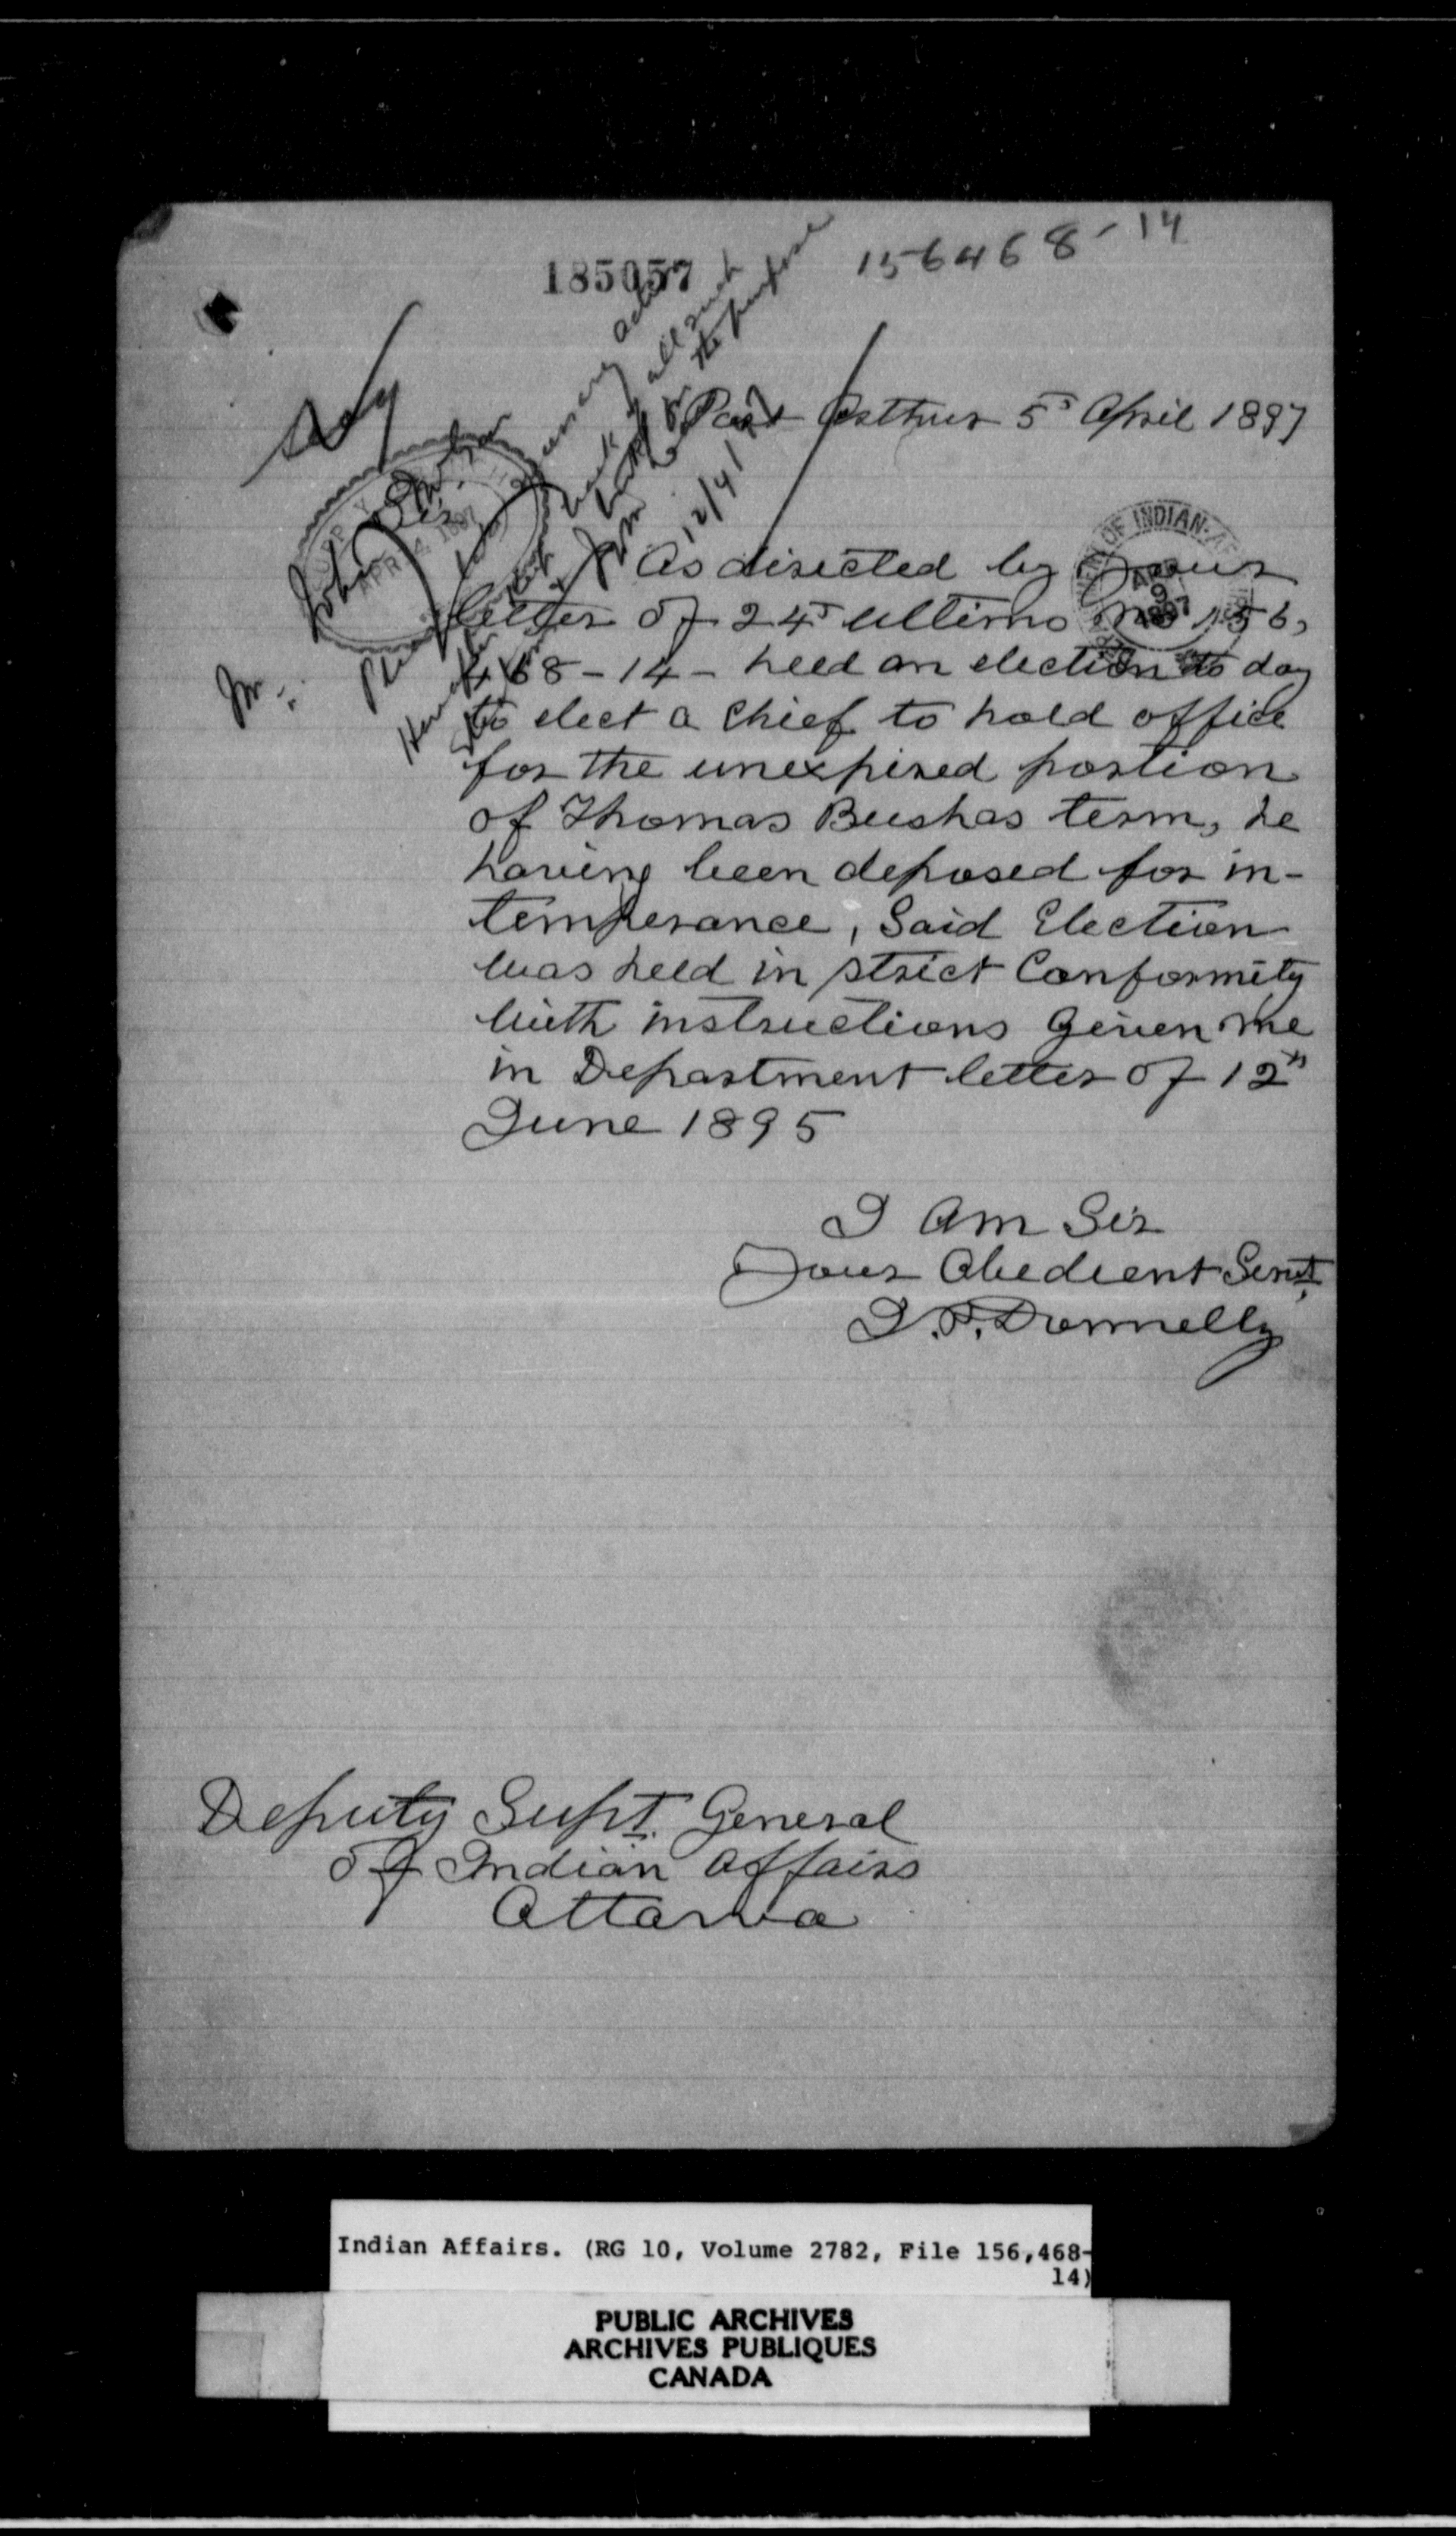 185057
156468-14
Port Arthur 5th April 1897
Sir
As directed by your
letter of 24th ultimo No 156,
468-14- held an election to day
to elect a Chief to hold office
for the unexpired portion
of Thomas Bushas term, he
having been deposed for in-
temperance, Said Election
was held in strict Conformity
with instructions Given me
in Department letter of 12th
June 1895
I Am Sir
Your Obedient Servt.
J.P. Donnelly
Deputy Supt. General
of Indian Affairs
Ottawa
all such
the purpose
12/4/97
OF INDIAN
APR
9
1897
Indian Affairs. (RG 10, Volume 2782, File 156,468-
14)
PUBLIC ARCHIVES
ARCHIVES PUBLIQUES
CANADA